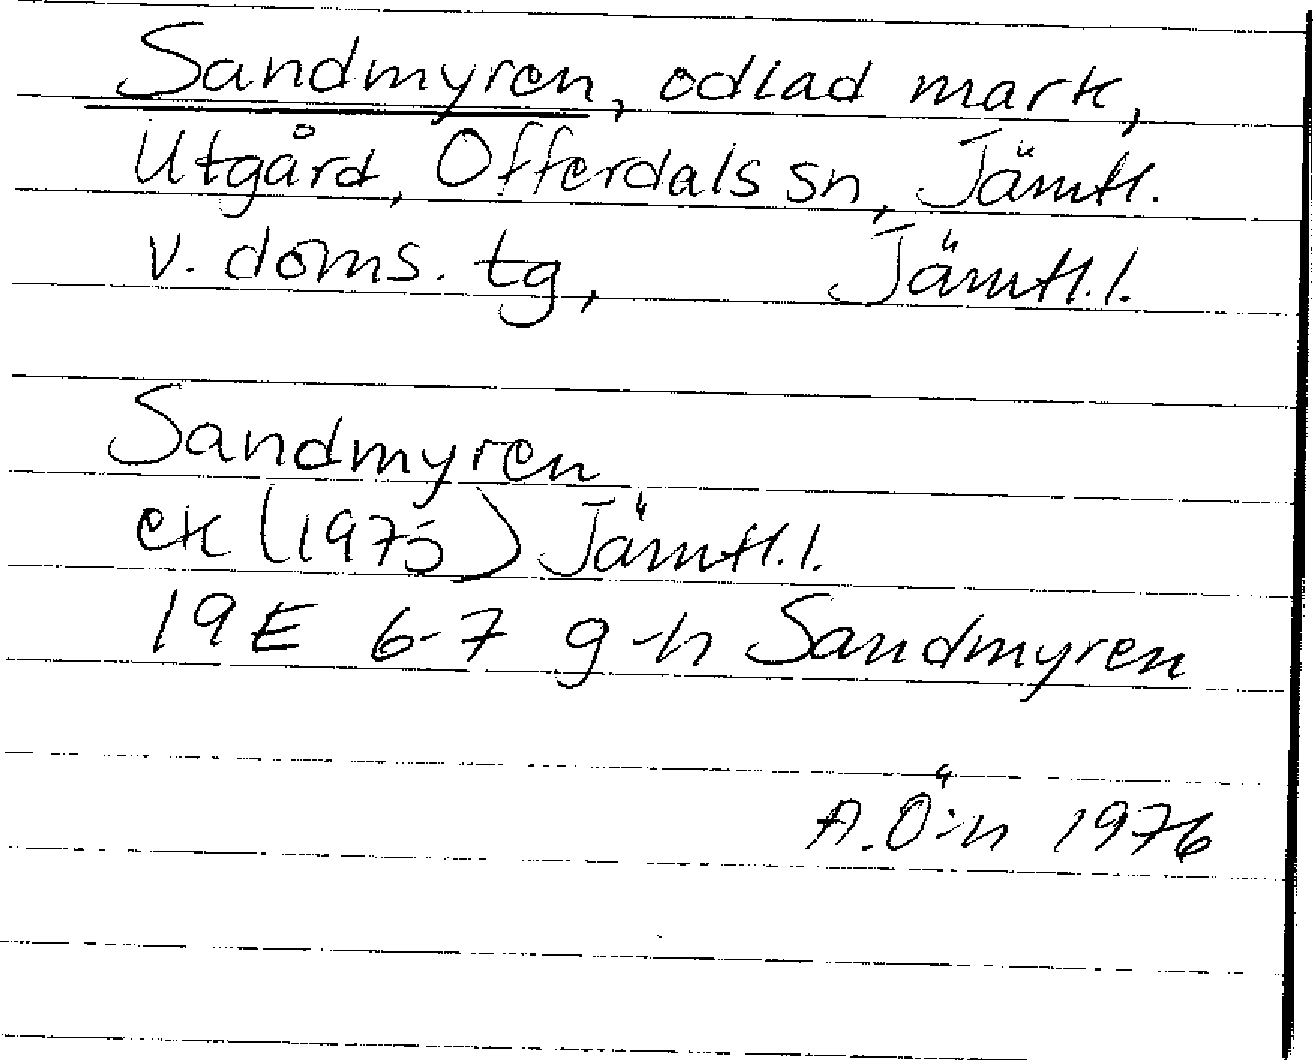 Sandmyren, odlad mark,
Utgård, Offerdals sn, Jämtl.
v. doms. tg, Jämtl.l.
Sandmyren
ek (1975) Jämtl.l.
19E 6-7 g-h Sandmyren
A.Ö:n 1976